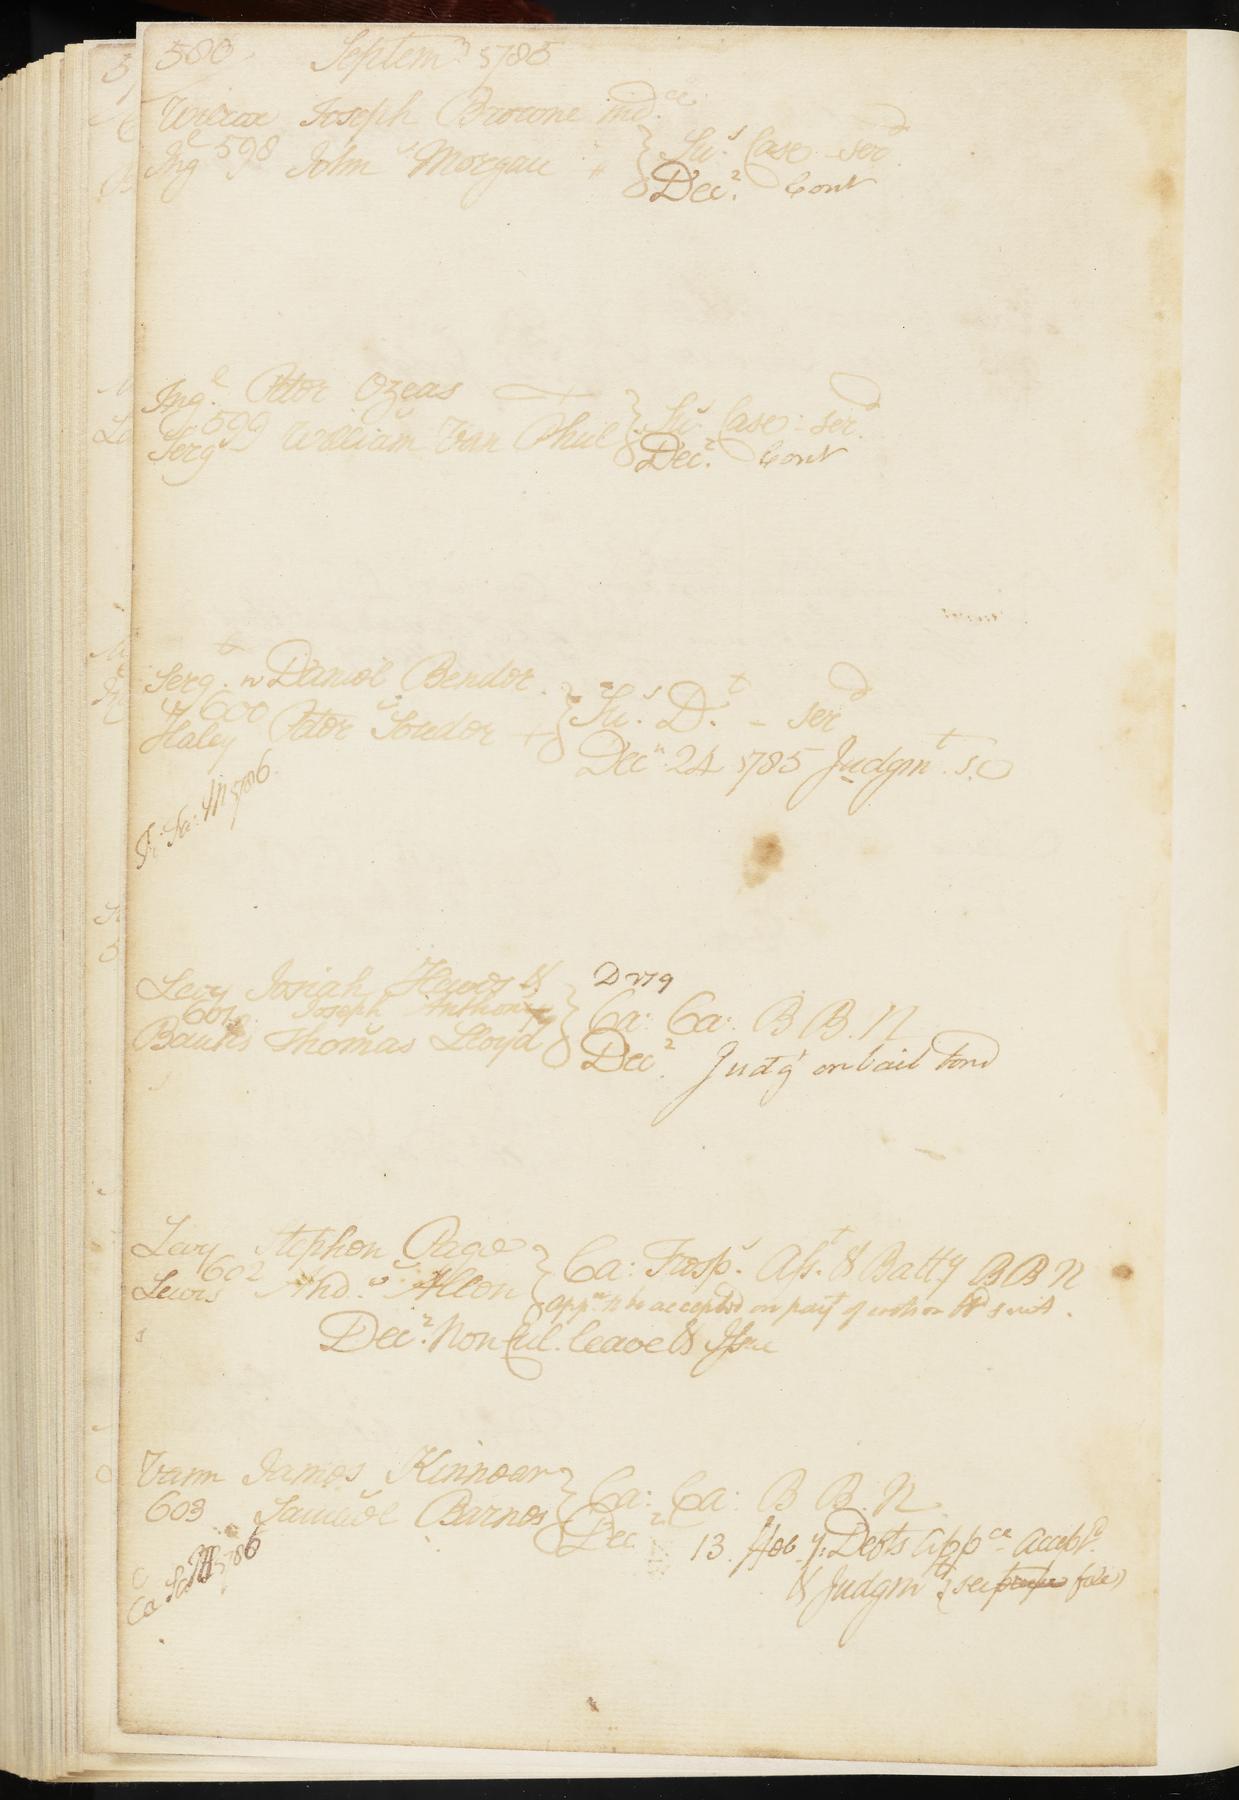 580 Septemr 1785
Wilcox Joseph Browne ind.ce
Ing.e 598 John Morgan } Su.s Case ser.d
Dec.r Cont
Ing.e Peter Ozeas } Su.s Case ser.d
599 v
Serg.t William Van Phul Dec.r Cont
Serg.t Daniel Bender } Su.s D.t - ser.d
600 v
Haley Peter Souder + Dec.r 24 1785 Judgm.t s.
Fi: Fa: M 1786
Levy Josiah Hewes & D 179
601 Joseph Anthony } Ca: Ca: B B. N
Banks Thomas Lloyd Dec.r Judg.t on bail bond
Levy Stephen Page } Ca: Tresp.s Ass.t & Batty B B N
602 v
Lewis And.w Allen
app.ce to be accepted on part of
Dec.r Non Cul. leave & Issue
Vann James Kinnear } Ca: Ca: B B. N
603 Samuel Barnes Dec.r 13. Deft's app.ce accept.d
& Judgm.t
Ca Sa M 1786